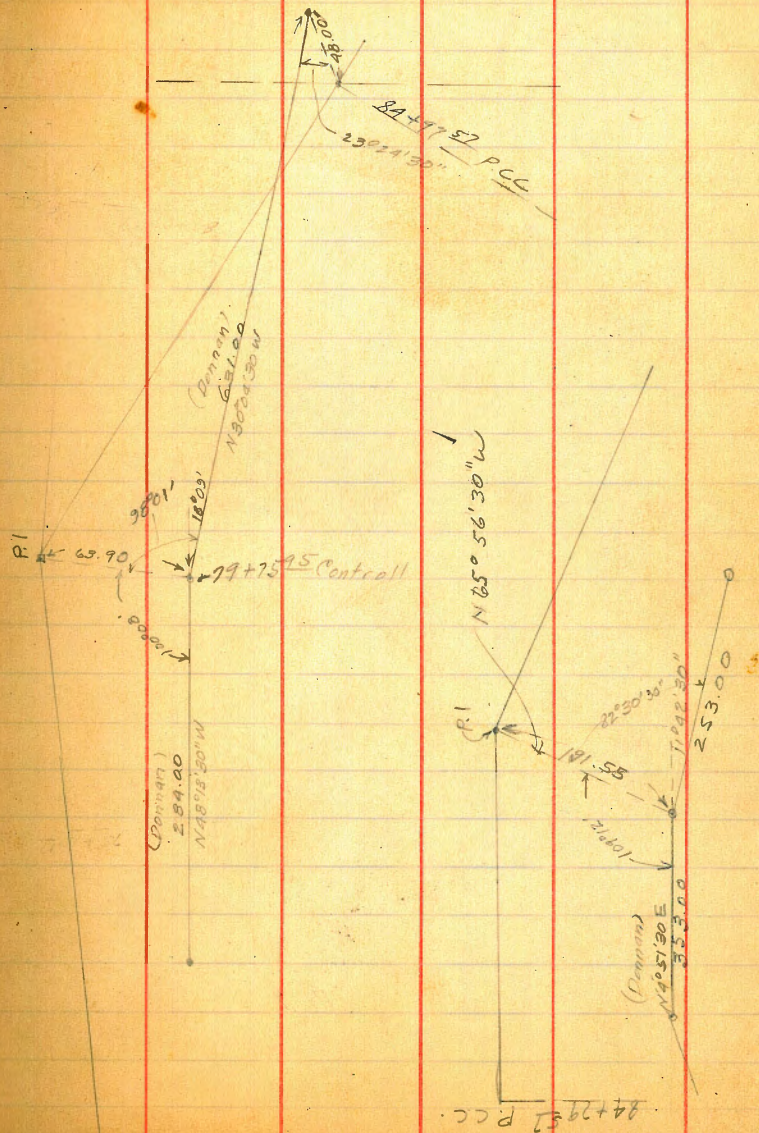 48.00
84+97 52 P.C.C
23°24'30"
(Donnan)
631.00
N30°04'30"W
18°09'
98°01'
P.I
63.90
79+75 95 Controll
100°08'
(Donnan)
284.00
N48°13'30"W
N65°56'30"W
P.I
22°30'30"
191.55
11°42'30"
253.00
109°12'
(Donnan)
N4°51'30E
353.00
84+79 52 P.C.C.